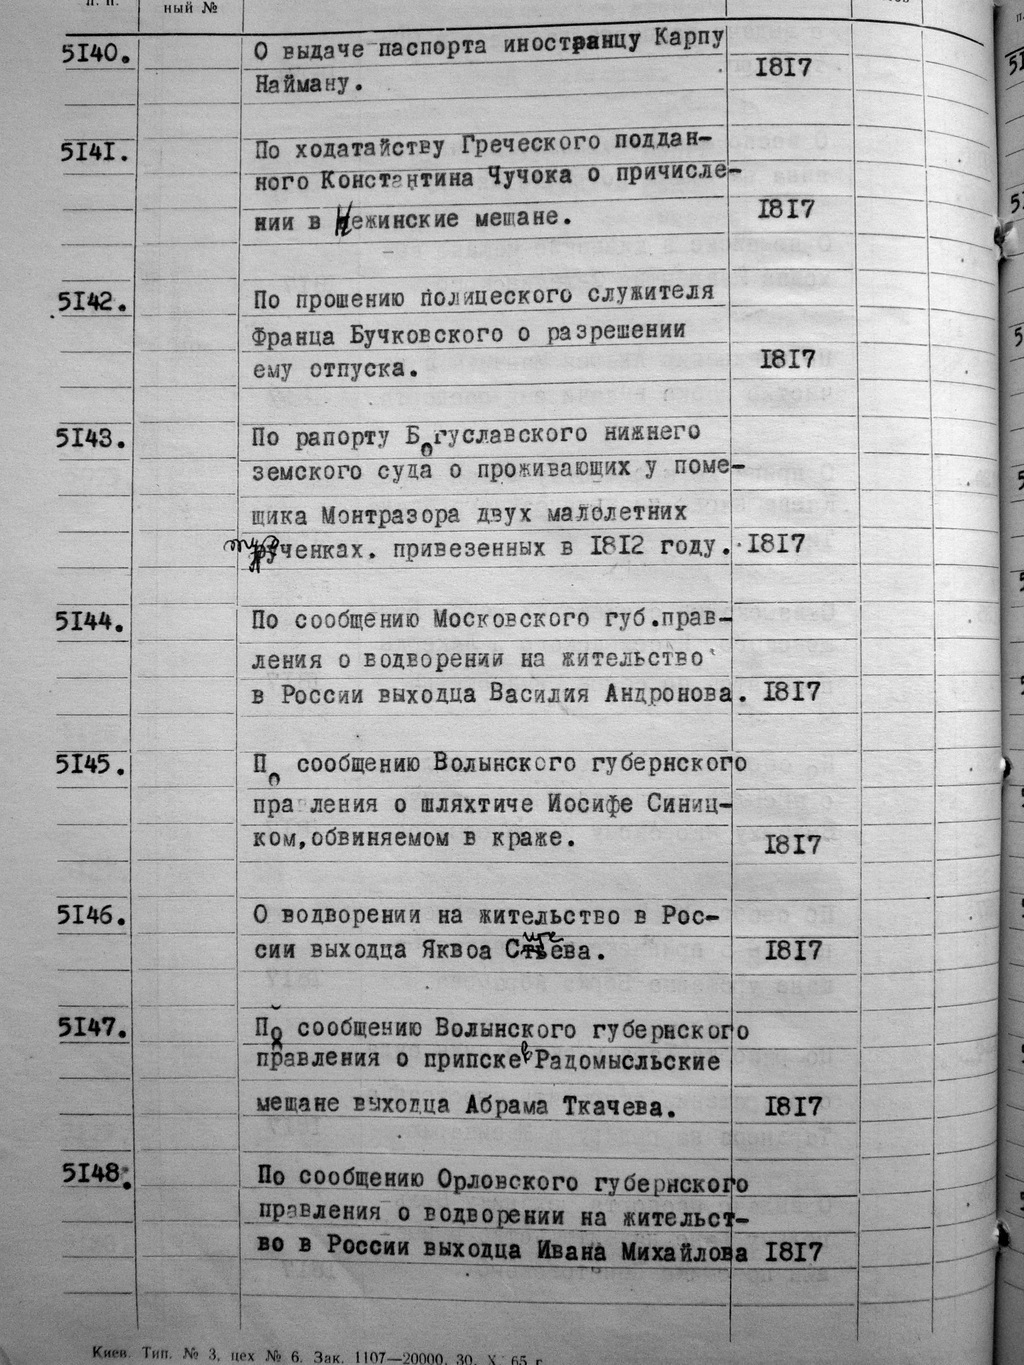 п. п.
ный №
5I40.
О выдаче паспорта иностранцу Карпу
Найману.
I8I7
5I4I.
По ходатайству Греческого поддан-
ного Константина Чучока о причисле-
нии в Нежинские мещане.
I8I7
5I42.
По прошению полицеского служителя
Франца Бучковского о разрешении
ему отпуска.
I8I7
5I43.
По рапорту Богуславского нижнего
земского суда о проживающих у поме-
щика Монтразора двух малолетних
турченках. привезенных в I8I2 году.
I8I7
5I44.
По сообщению Московского губ.прав-
ления о водворении на жительство
в России выходца Василия Андронова.
I8I7
5I45.
По сообщению Волынского губернского
пра ления о шляхтиче Иосифе Синиц-
ком,обвиняемом в краже.
I8I7
5I46.
О водворении на жительство в Рос-
сии выходца Яквоа Стщеева.
I8I7
5I47.
По сообщению Волынского губернского
правления о приписке в Радомысльские
мещане выходца Абрама Ткачева.
I8I7
5I48.
По сообщению Орловского губернского
правления о водворении на жительст-
во в России выходца Ивана Михайлова
I8I7
Киев. Тип. № 3, цех № 6. Зак. 1107—20000. 30. X 65 г.